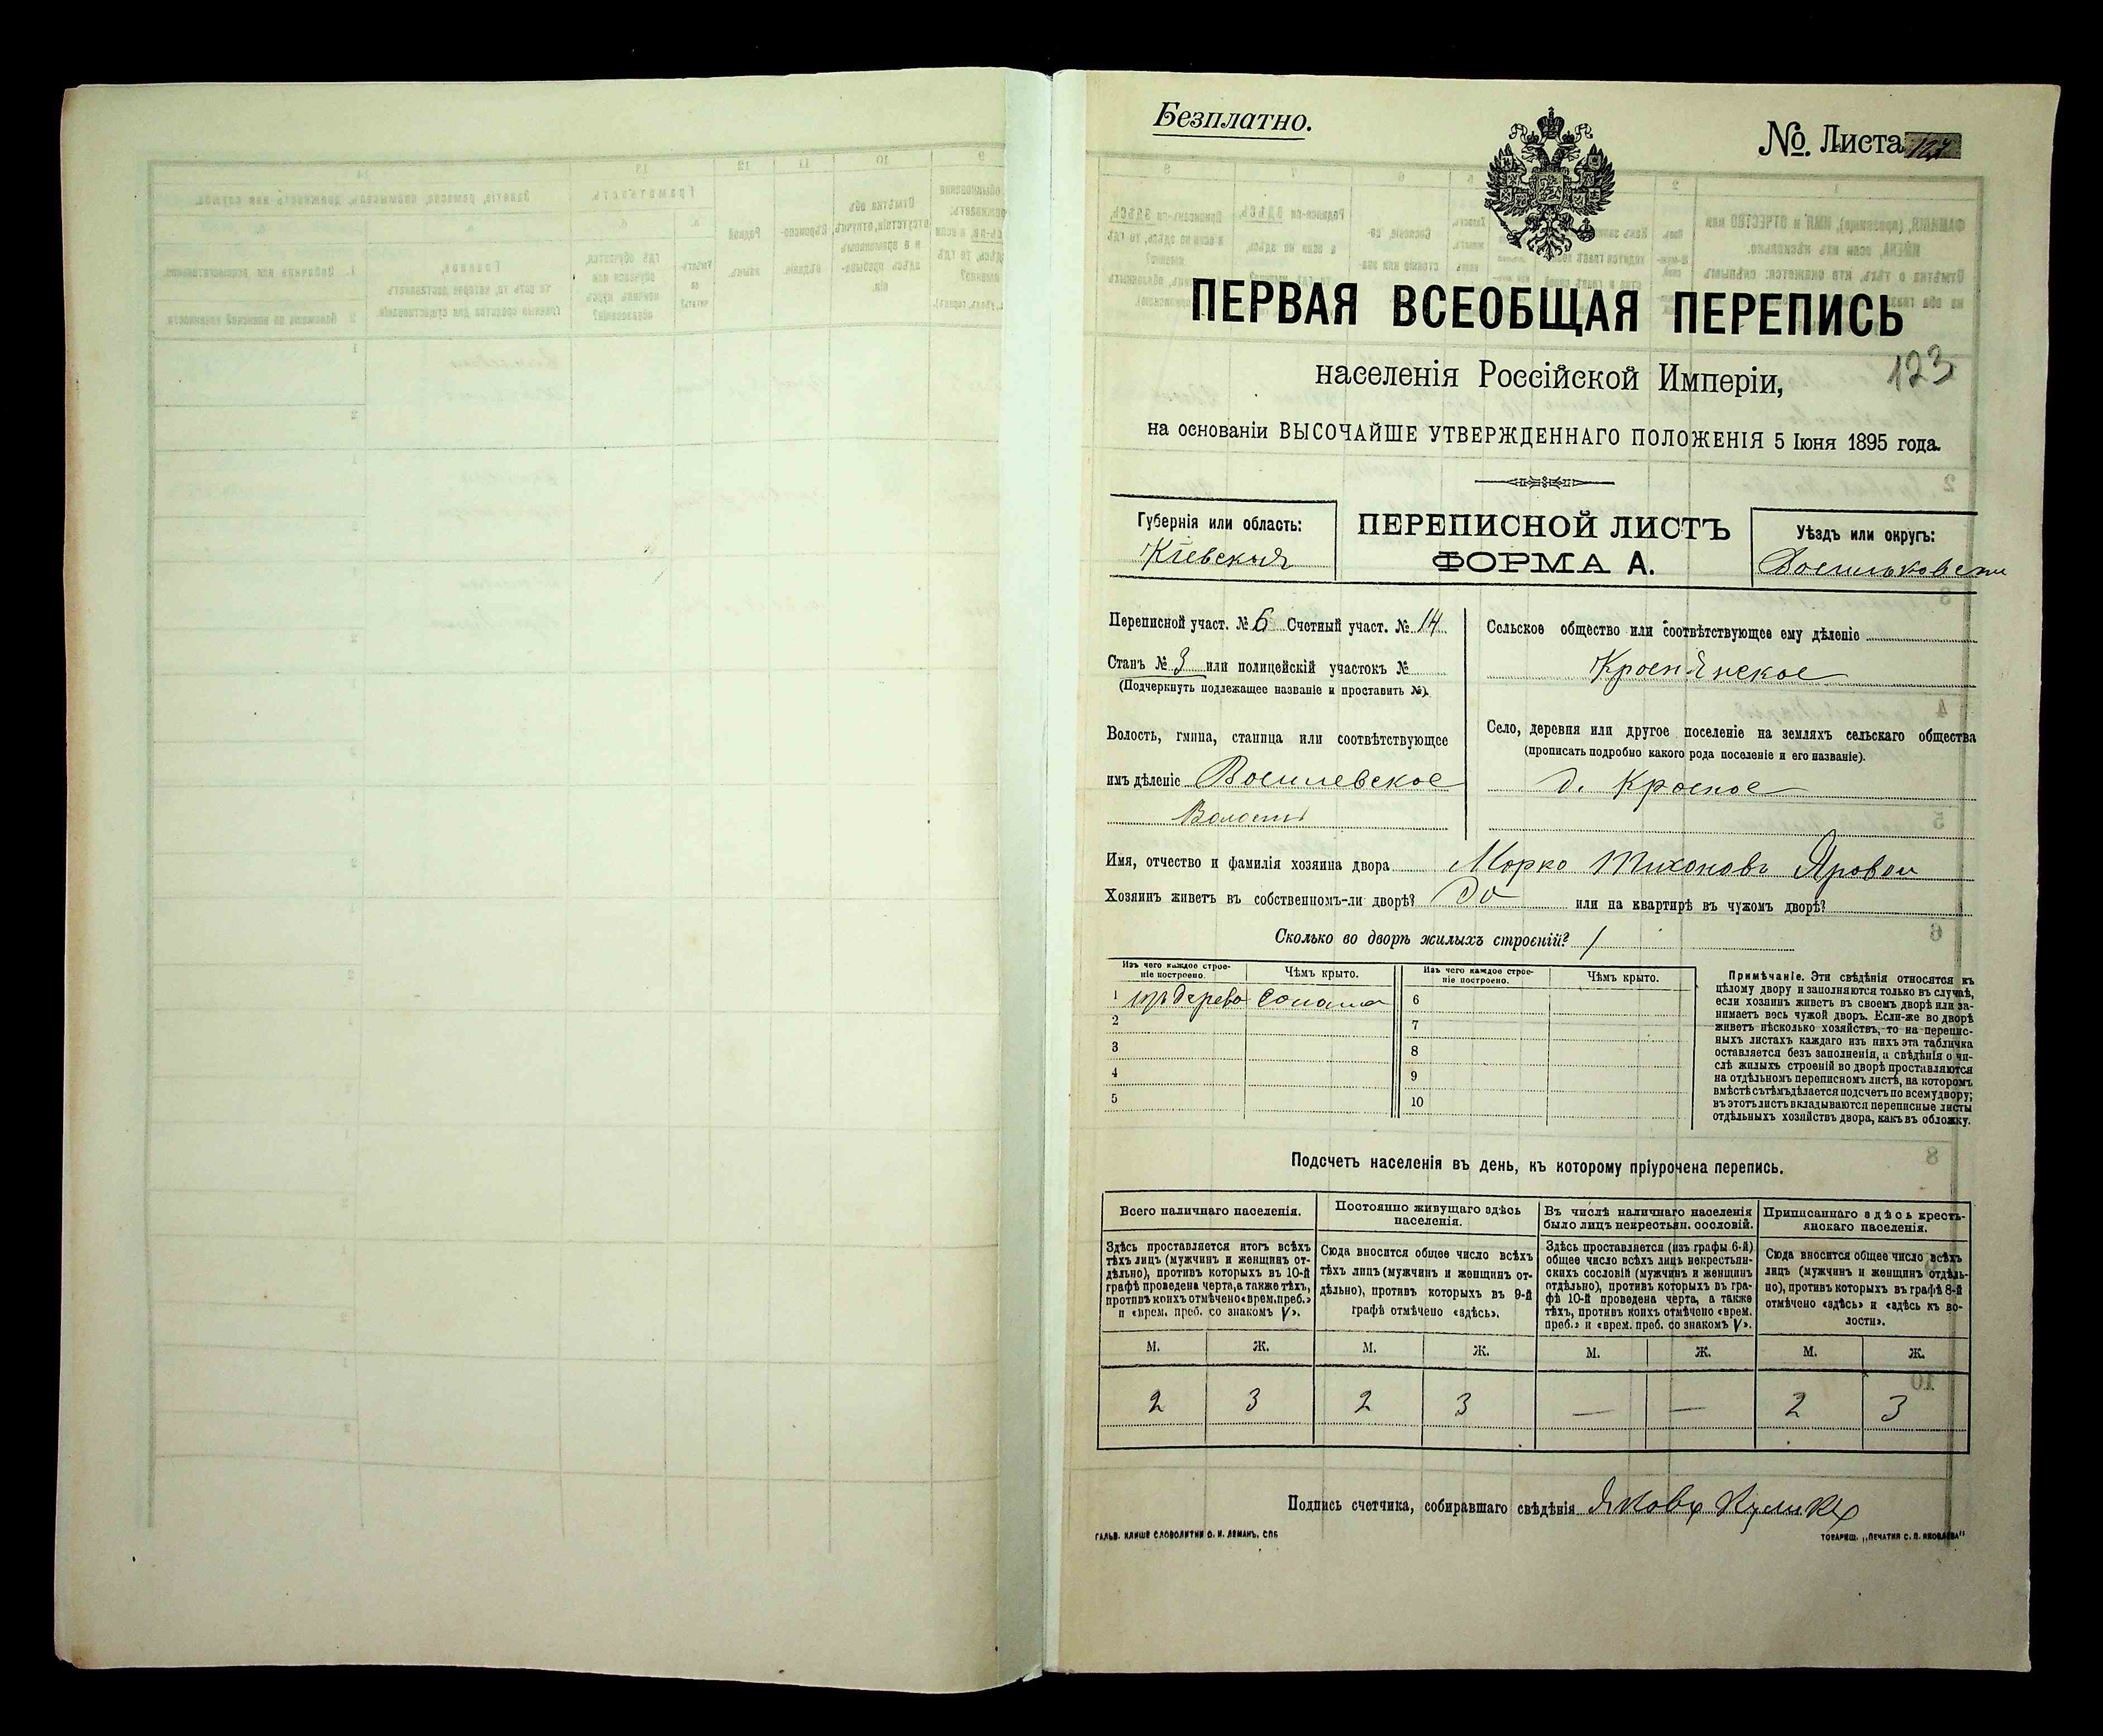 Безплатно.
№ Листа 127
ПЕРВАЯ ВСЕОБЩАЯ ПЕРЕПИСЬ
населенія Россійской Имперіи,
123
на основаніи ВЫСОЧАЙШЕ УТВЕРЖДЕННАГО ПОЛОЖЕНІЯ 5 Іюня 1895 года.
Губернія или область:
Кіевская
ПЕРЕПИСНОЙ ЛИСТЪ
ФОРМА А.
Уѣздъ или округъ:
Васильковскій
Переписной участ. № 6 Счетный участ. № 14
Станъ № 3 или полицейскій участокъ №
(Подчеркнуть подлежащее названіе и проставить №).
Волость, гмина, станица или соотвѣтствующее
имъ дѣленіе
Волости
Сельское общество или соотвѣтствующее ему дѣленіе
Краснянское
Село, деревня или другое поселеніе на земляхъ сельскаго общества
(прописать подробно какого рода поселеніе и его названіе).
д. Красное
Имя, отчество и фамилія хозяина двора Марко Тихоновъ Яровой
Хозяинъ живетъ въ собственномъ-ли дворѣ? Да или на квартирѣ въ чужомъ дворѣ?
Сколько во дворѣ жилыхъ строеній? 1
Изъ чего каждое строе-
ніе построено.
Чѣмъ крыто.
1 изъ дерева солома
2
3
4
5
Изъ чего каждое строе-
ніе построено.
Чѣмъ крыто.
6
7
8
9
10
Примѣчаніе. Эти свѣдѣнія относятся къ
цѣлому двору и заполняются только въ случаѣ,
если хозяинъ живетъ въ своемъ дворѣ или за-
нимаетъ весь чужой дворъ. Если-же во дворѣ
живетъ нѣсколько хозяйствъ, то на перепис-
ныхъ листахъ каждаго изъ нихъ эта табличка
оставляется безъ заполненія, а свѣдѣнія о чи-
слѣ жилыхъ строеній во дворѣ проставляются
на отдѣльномъ переписномъ листѣ, на которомъ
вмѣстѣ съ тѣмъ дѣлается подсчетъ по всему двору;
въ этотъ листъ вкладываются переписные листы
отдѣльныхъ хозяйствъ двора, какъ въ обложку.
Подсчетъ населенія въ день, къ которому пріурочена перепись.
Всего наличнаго населенія.
Здѣсь проставляется итогъ всѣхъ
тѣхъ лицъ (мужчинъ и женщинъ от-
дѣльно), противъ которыхъ въ 10-й
графѣ проведена черта, а также тѣхъ,
противъ коихъ отмѣчено «врем. преб.»
и «врем. преб. со знакомъ V».
Постоянно живущаго здѣсь
населенія.
Сюда вносится общее число всѣхъ
тѣхъ лицъ (мужчинъ и женщинъ от-
дѣльно), противъ которыхъ въ 9-й
графѣ отмѣчено «здѣсь».
Въ числѣ наличнаго населенія
было лицъ некрестьян. сословій.
Здѣсь проставляется (изъ графы 6-й)
общее число всѣхъ лицъ некрестьян-
скихъ сословій (мужчинъ и женщинъ
отдѣльно), противъ которыхъ въ гра-
фѣ 10-й проведена черта, а также
тѣхъ, противъ коихъ отмѣчено «врем.
преб.» и «врем. преб. со знакомъ V».
Приписаннаго здѣсь кресть-
янскаго населенія.
Сюда вносится общее число всѣхъ
лицъ (мужчинъ и женщинъ отдѣль-
но), противъ которыхъ въ графѣ 8-й
отмѣчено «здѣсь» и «здѣсь къ во-
лости».
М. Ж. М. Ж. М. Ж. М. Ж.
2 3 2 3 — — 2 3
Подпись счетчика, собиравшаго свѣдѣнія Яковъ Куликъ
ГАЛЬВ. КЛИШЕ СЛОВОЛИТНИ О. И. ЛЕМАНЪ, СПБ
ТОВАРИЩ. „ПЕЧАТНЯ С. П. ЯКОВЛЕВА"